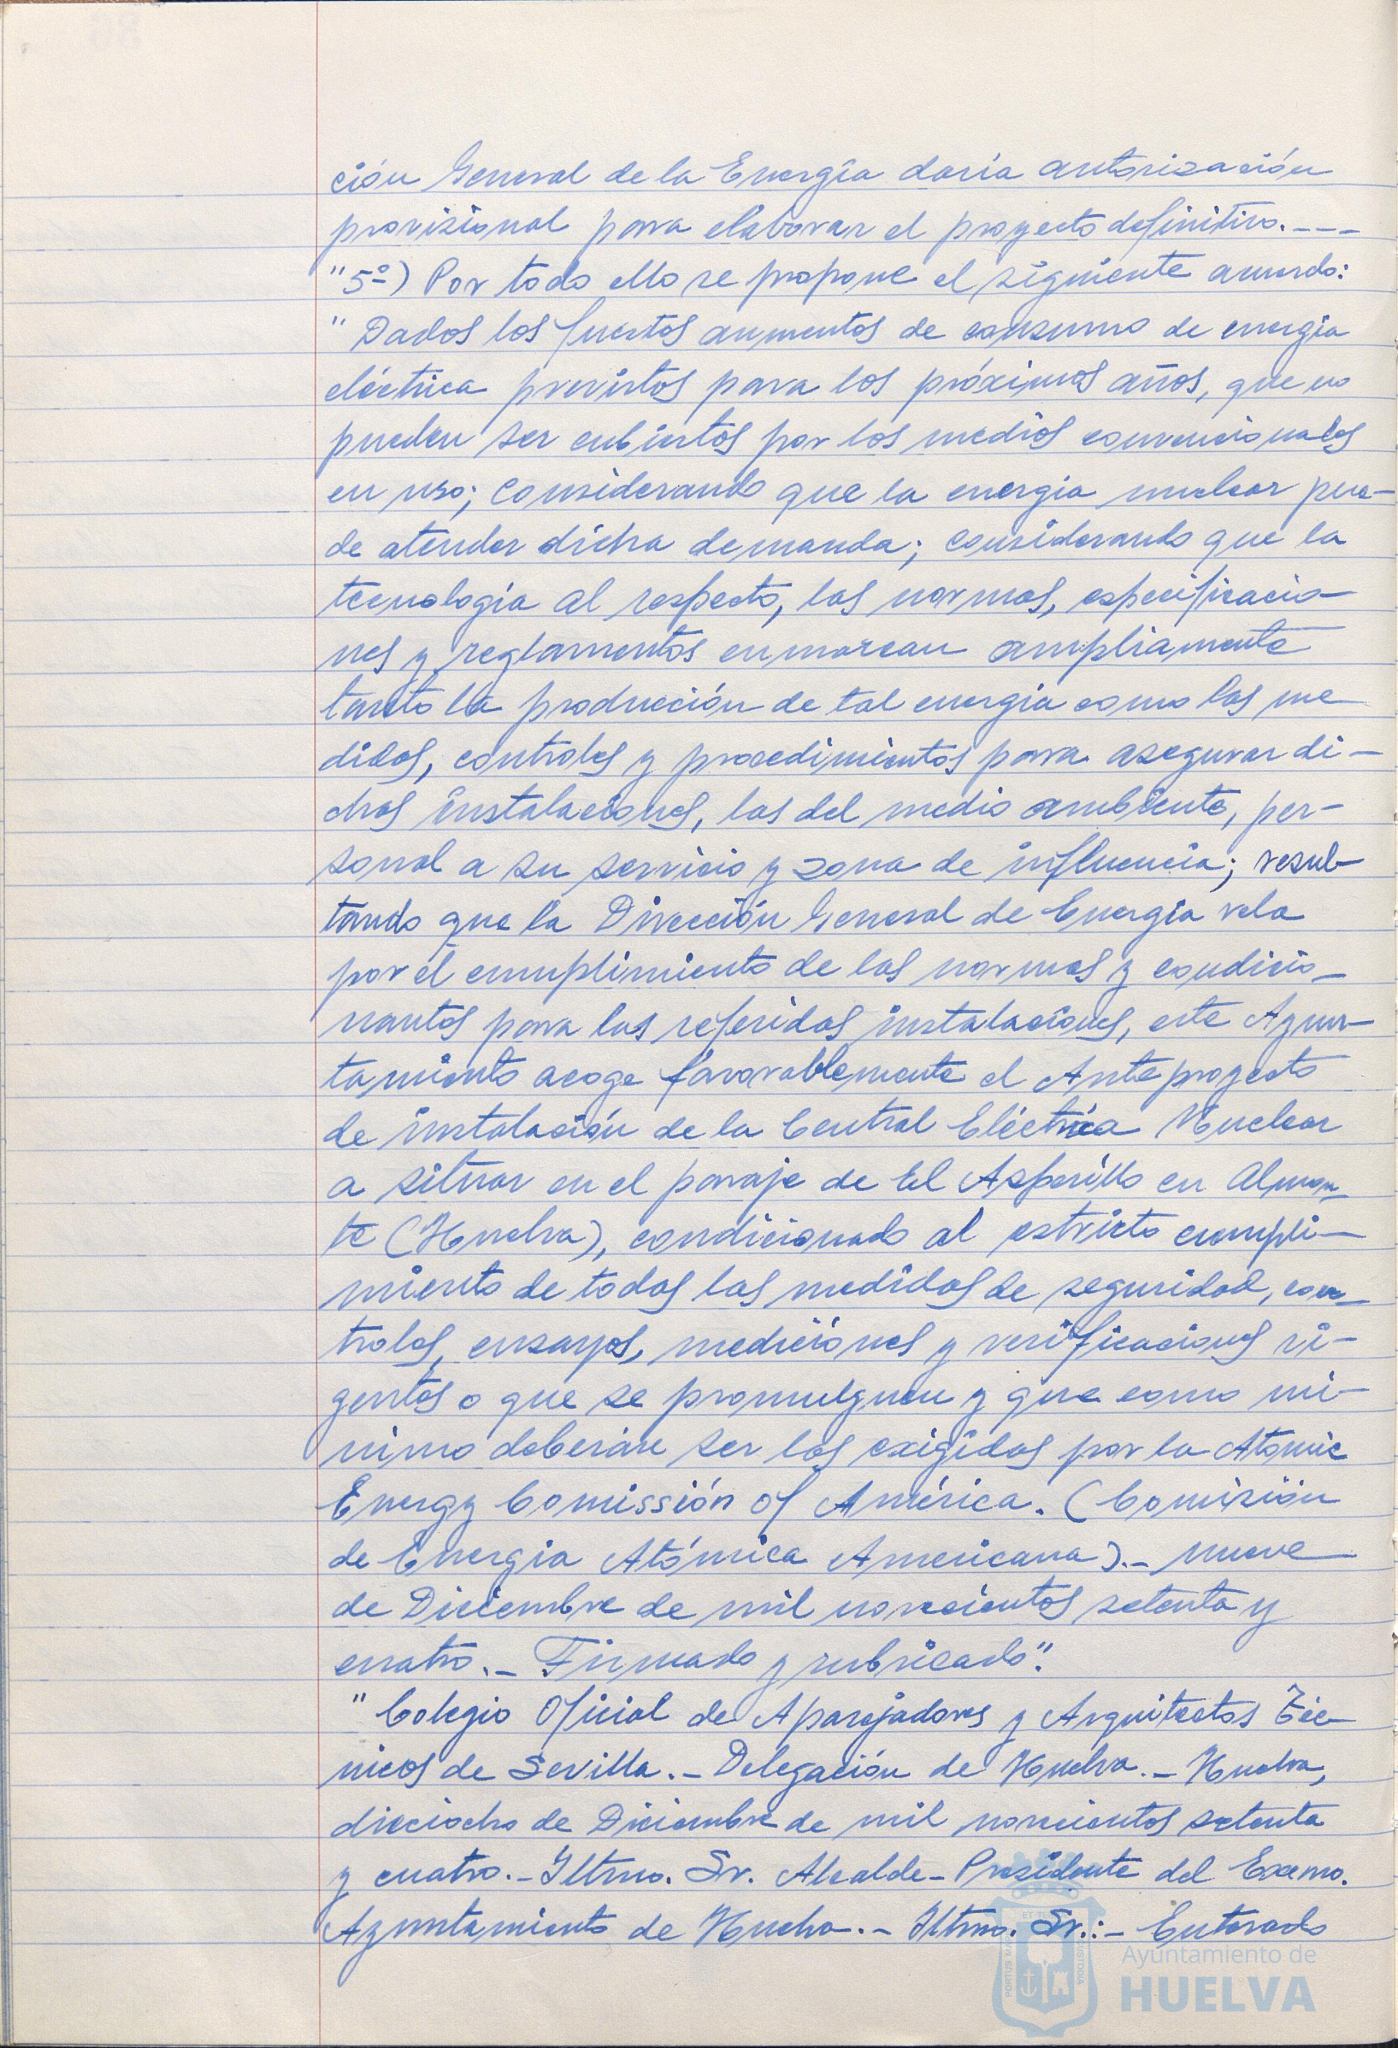 ción General de la Energía daría autorización
provisional para elaborar el proyecto definitivo.---
"5º) Por todo ello se propone el siguiente acuerdo:
"Dados los fuertes aumentos de consumo de energía
eléctrica previstos para los próximos años, que no
pueden ser cubiertos por los medios convencionales
en uso; considerando que la energía nuclear pue-
de atender dicha demanda; considerando que la
tecnología al respecto, las normas, especificacio-
nes y reglamentos enmarcan ampliamente
tanto la producción de tal energía como las me
didas, controles y procedimientos para asegurar di-
chas instalaciones, las del medio ambiente, per-
sonal a su servicio y zona de influencia; resul-
tando que la Dirección General de Energía vela
por el cumplimiento de las normas y condicio-
nantes para las referidas instalaciones, este Ayun-
tamiento acoge favorablemente el Anteproyecto
de instalación de la Central Eléctrica Nuclear
a situar en el paraje de El Asperillo en Almon-
te (Huelva), condicionado al estricto cumpli-
miento de todas las medidas de seguridad, con-
troles, ensayos, mediciones y verificaciones vi-
gentes o que se promulguen y que como mí-
nimo deberán ser las exigidas por la Atomic
Energy Comissión of América. (Comisión
de Energía Atómica Americana).- nueve
de Diciembre de mil novecientos setenta y
cuatro.- Firmado y rubricado".
"Colegio Oficial de Aparejadores y Arquitectos Téc-
nicos de Sevilla.- Delegación de Huelva.- Huelva,
dieciocho de Diciembre de mil novecientos setenta
y cuatro.- Iltmo. Sr. Alcalde-Presidente del Excmo.
Ayuntamiento de Huelva.- Iltmo. Sr.:- Enterado
Ayuntamiento de
HUELVA